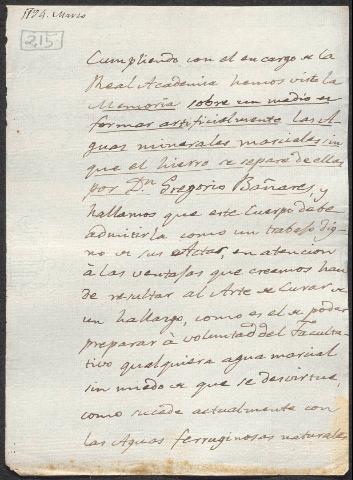 1794. Marzo
215
Cumpliendo con el encargo de la
Real Academia hemos visto la
Memoria sobre un medio de
formar artificialmente las A-
guas minerales marciales sin
que el hierro se separe de ellas
por Dn Gregorio Bañares, y
hallamos que este Cuerpo debe
admitirla como un trabajo dig-
no de sus Actas, en atencion
à las ventajas que creemos han
de resultar al Arte de Curar de
un hallazgo, como es el de poder
preparar à voluntad del Faculta-
tivo qualquiera agua marcial
sin miedo de que se desvirtue,
como sucede actualmente con
las Aguas ferruginosas naturales